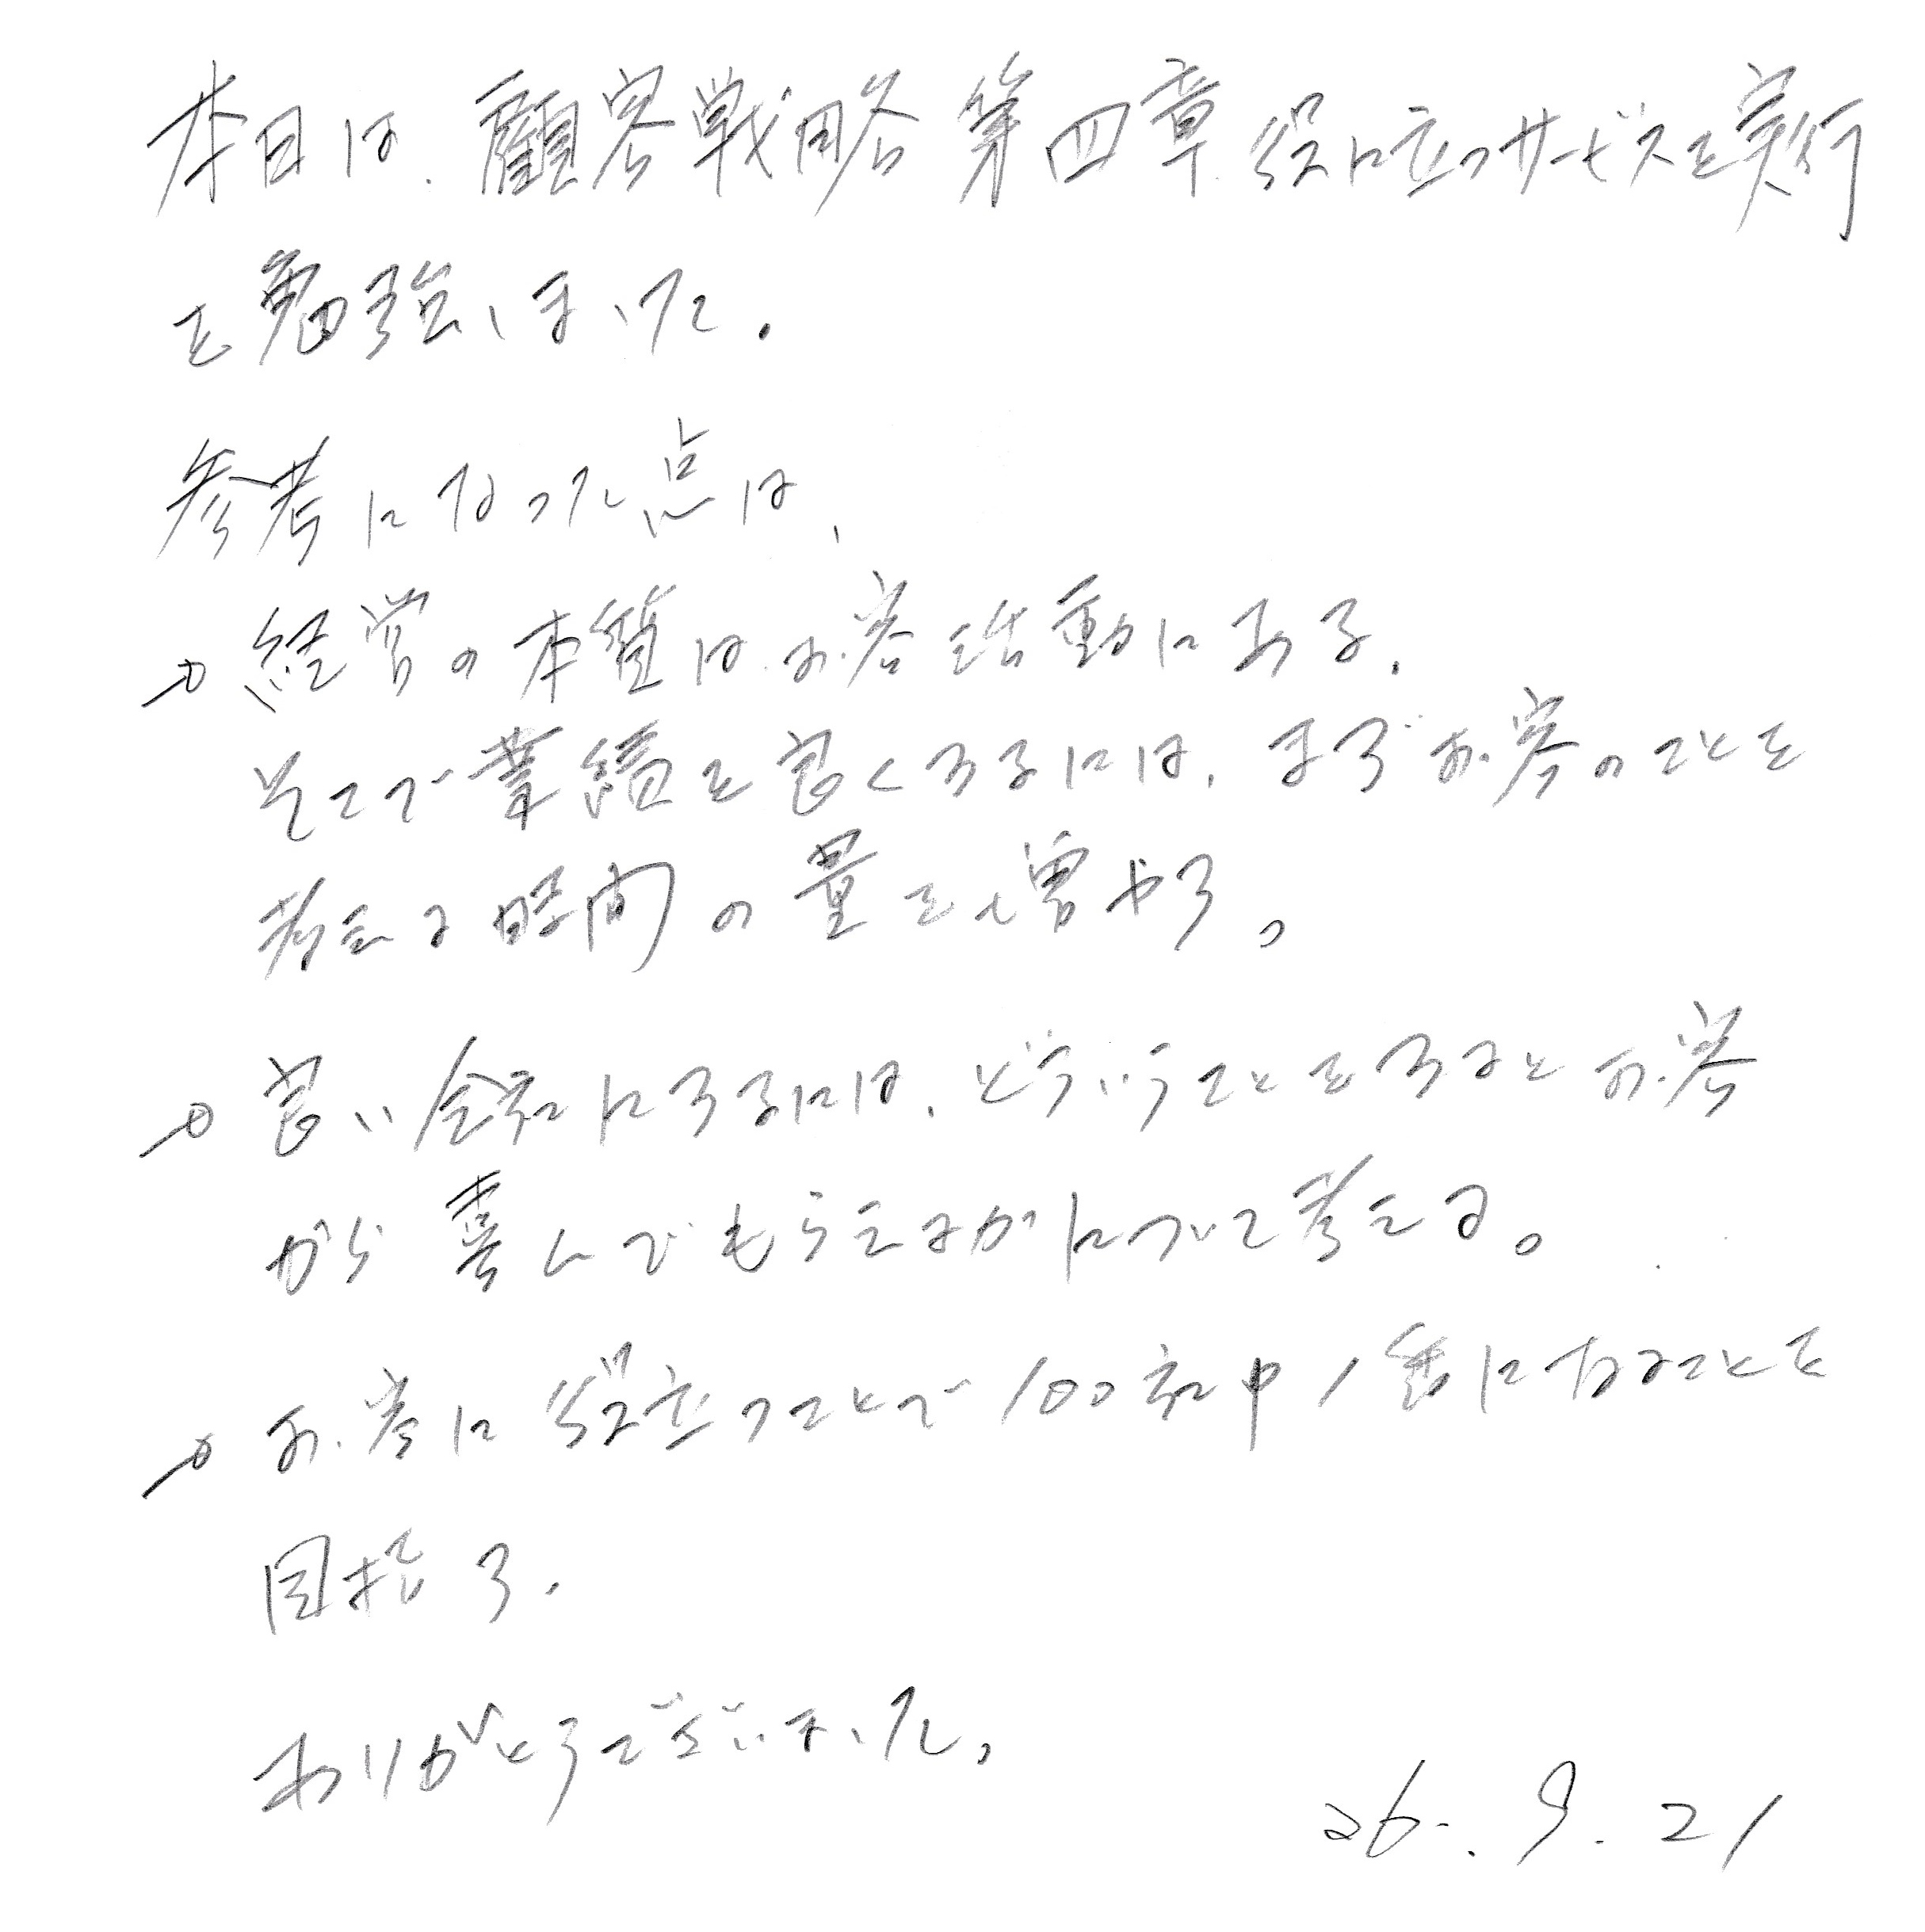 本日は、顧客戦略 第四章 役に立つサービスを実行
を勉強しました。
参考になった点は、
→ 経営の本質は、お客活動にある。
そこで業績を良くするには、まずお客のことを
考える時間の量を増やす。
→ 良い会社にするには、どういうことをするとお客
から喜んでもらえるかについて考える。
→ お客に役立つことで100社中1番になることを
目指す。
ありがとうございました。
26. 9. 21